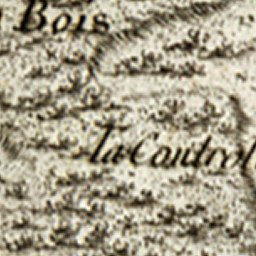 Bois
la Control